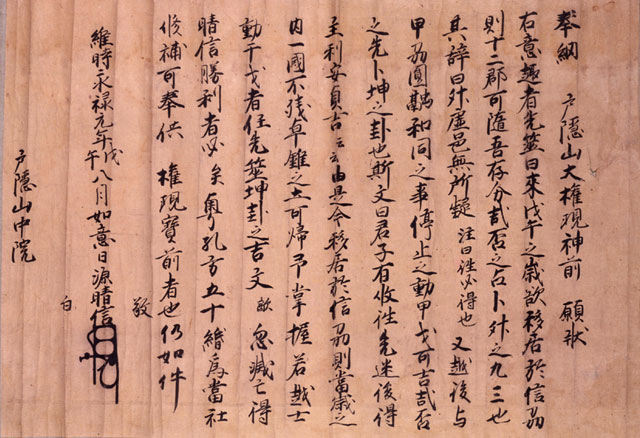 奉納　戸隠山大権現神前　願状
右意趣者先筮曰来戊午之歳欲移居於信刕
則十二郡可隨吾存分哉否之占卜升之九三也
其辞曰升虚邑無所疑　注曰往必得也　又越後与
甲刕圓融和同之事停止之動甲戈可吉哉否
之先卜坤之卦也斯文曰君子有攸往先迷後得
主利安貞吉云云由是今移居於信刕則當歳之
内一國不残卓錐之土可帰予掌握若越士
動干戈者任先筮坤卦之吉文　敵忽滅亡得
晴信勝利者必矣粤孔方五十緡為當社
修補可奉供　権現寳前者也仍如件
敬
白
維時永禄元年戊午八月如意日源晴信
戸隠山中院